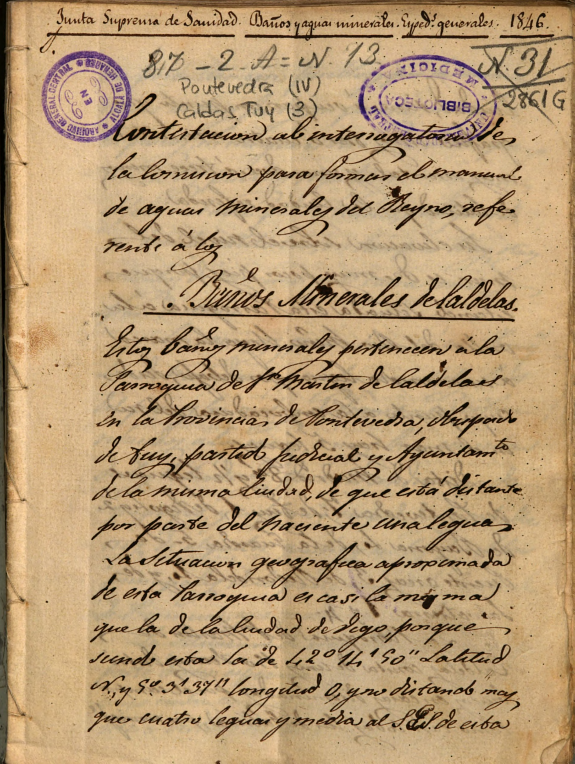 Junta Suprema de Sanidad. Baños y aguas minerales. Exped.s generales. 1846.
817 - 2 A = N. 13.
N. 31
2861 G
Pontevedra (IV)
Caldas Tuy (3)
ARCHIVO GENERAL CENTRAL EN ALCALÁ DE HENARES
BIBLIOTECA MEDICINA
Contestacion al interrogatorio de
la Comision para formar el manual
de aguas minerales del Reyno, refe
rente á los
Baños Minerales de Caldelas.
Estos baños minerales pertenecen á la
Parroquia de Sn. Martin de Caldelas
en la Provincia de Pontevedra, obispado
de Tuy, partido judicial y Ayuntamto
de la misma Ciudad, de que esta distante
por parte del naciente una legua.
La situacion geografica aproximada
de esta Parroquia es casi la misma
que la de la Ciudad de Vigo, porque
siendo esta la de 42º 14' 50" Latitud
N, y 5º 3' 37" longitud O, y no distando mas
que cuatro leguas y media al S.E.S. de esta